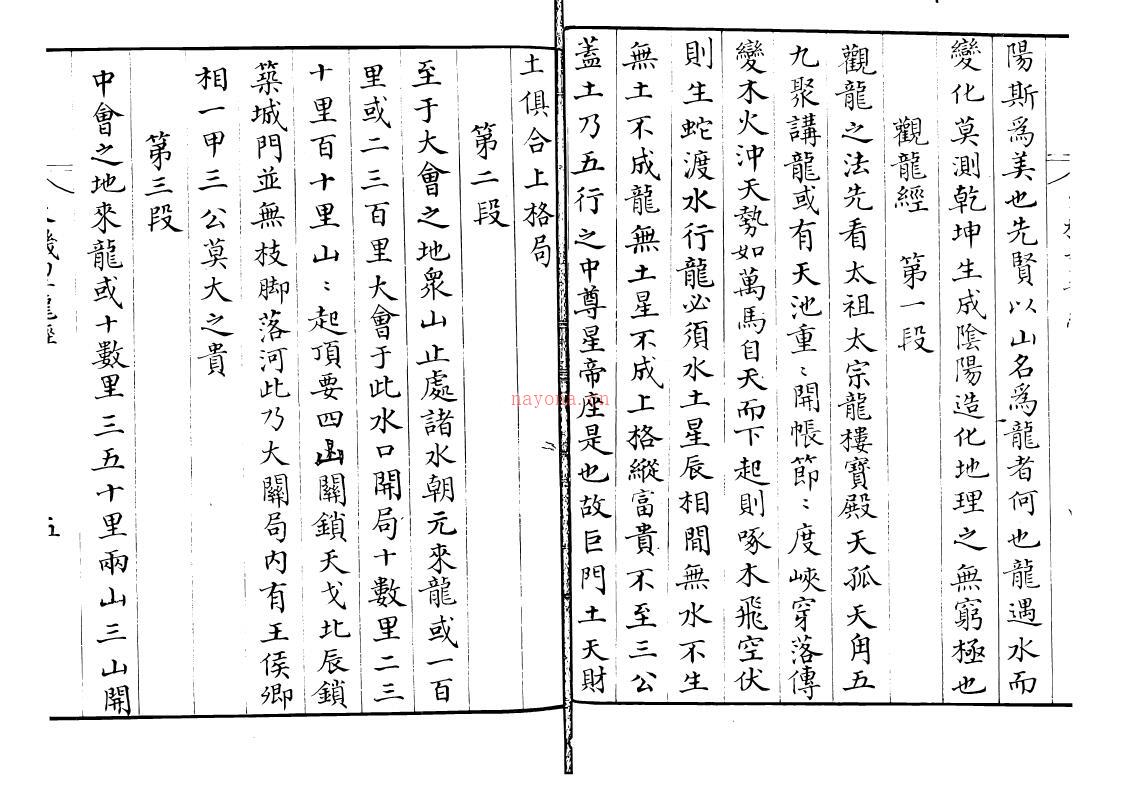 陽斯爲美也先賢以山名爲龍者何也龍遇水而
變化莫測乾坤生成陰陽造化地理之無窮極也
觀龍經　第一段
觀龍之法先看太祖太宗龍樓寶殿天孤天角五
九聚講龍或有天池重〻開帳節〻度峽穿落傳
變木火沖天勢如萬馬自天而下起則啄木飛空伏
則生蛇渡水行龍必須水土星辰相間無水不生
無土不成龍無土星不成上格縱富貴不至三公
蓋土乃五行之中尊星帝座是也故巨門土天財
土俱合上格局
第二段
至于大會之地衆山止處諸水朝元來龍或一百
里或二三百里大會于此水口開局十數里二三
十里百十里山〻起頂要四凶關鎖天戈北辰鎖
築城門並無枝脚落河此乃大關局内有王侯卿
相一甲三公莫大之貴
第三段
中會之地來龍或十數里三五十里兩山三山開
五
nayona.cn